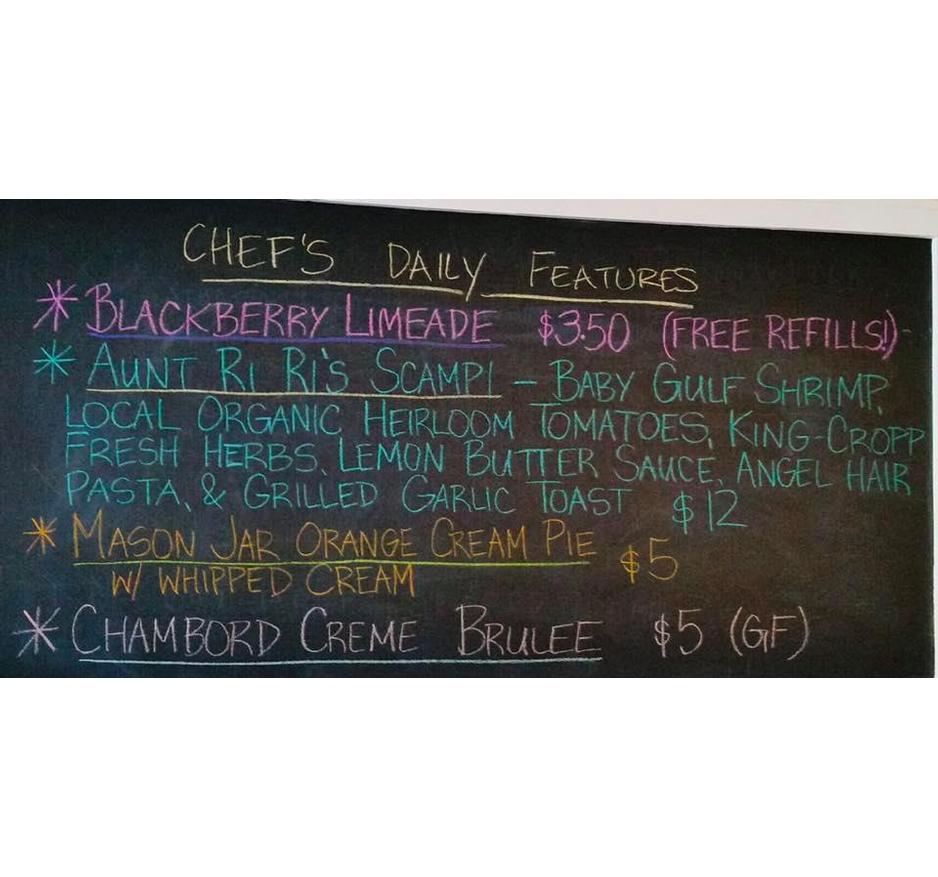 CHEF'S DAILY FEATURES
* BLACKBERRY LIMEADE $3.50 (FREE REFILLS!)
* AUNT RI RI'S SCAMPI - BABY GULF SHRIMP,
LOCAL ORGANIC HEIRLOOM TOMATOES, KING-CROPP
FRESH HERBS, LEMON BUTTER SAUCE, ANGEL HAIR
PASTA, & GRILLED GARLIC TOAST $12
* MASON JAR ORANGE CREAM PIE $5
W/ WHIPPED CREAM
* CHAMBORD CREME BRULEE $5 (GF)